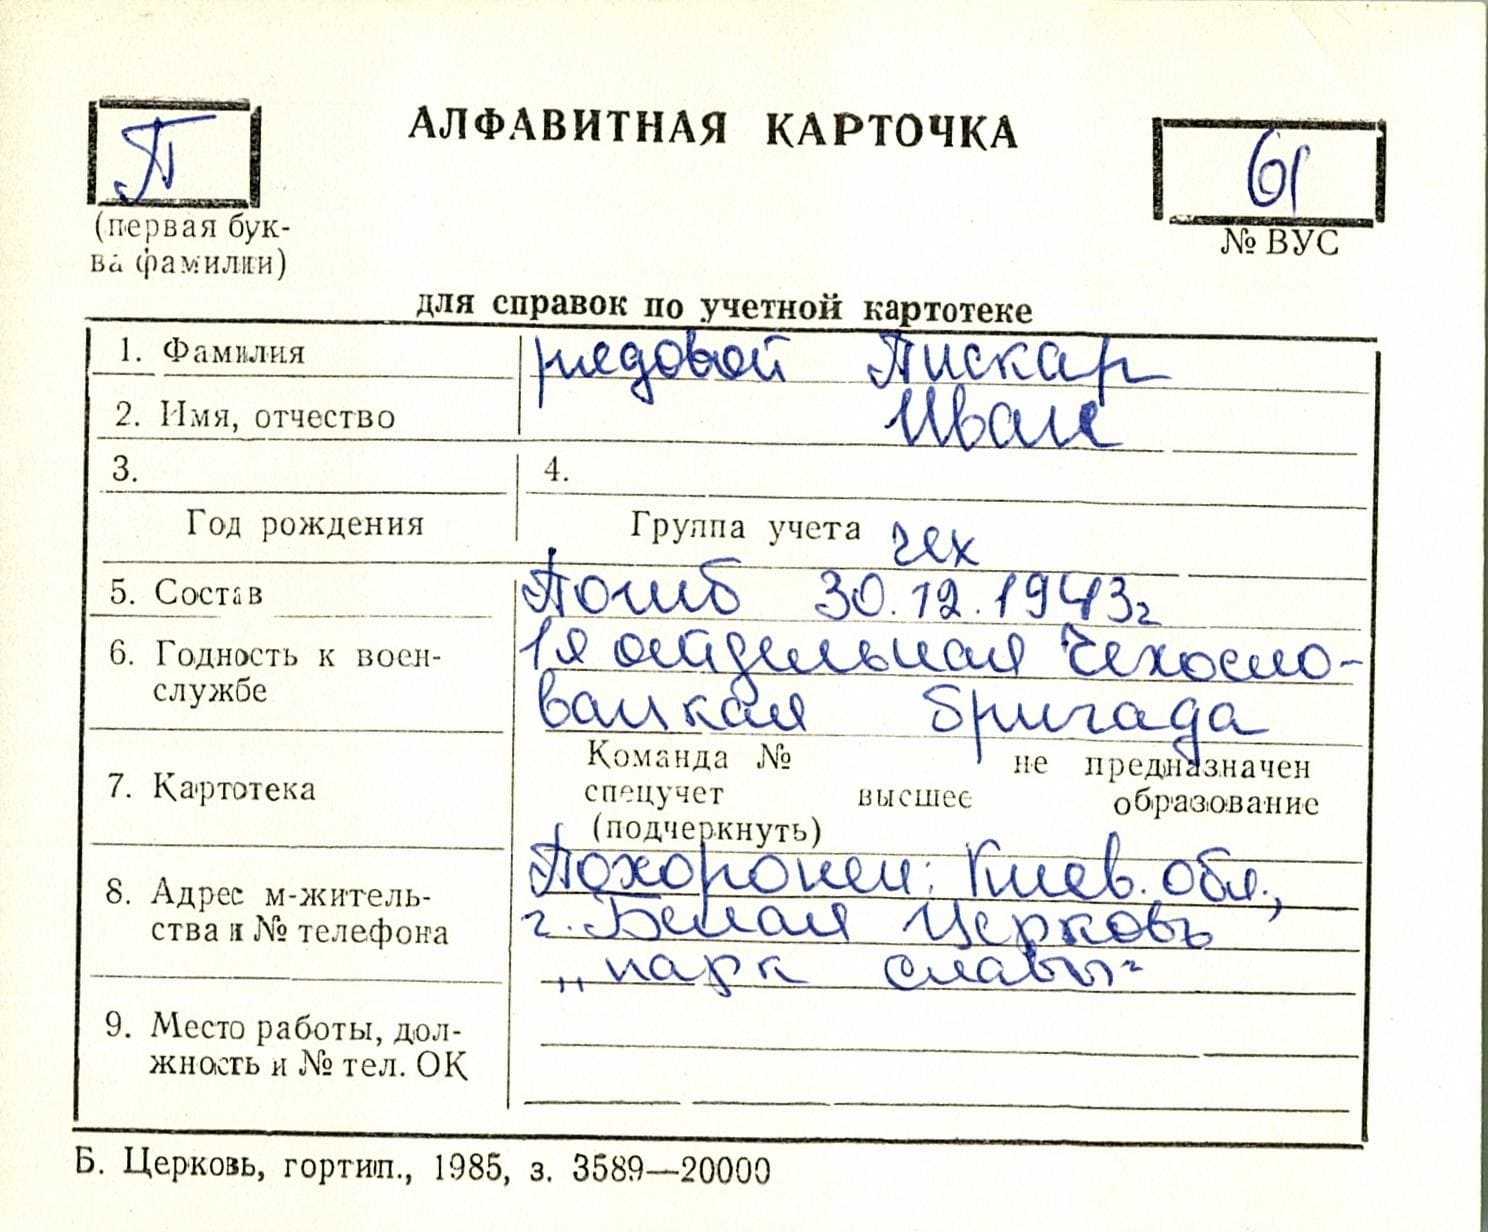 АЛФАВИТНАЯ КАРТОЧКА
П
61
(первая бук-
ва фамилии)
№ ВУС
для справок по учетной картотеке
1. Фамилия рядовой Пискар
2. Имя, отчество Иван
3. 4.
Год рождения Группа учета чех
5. Состав Погиб 30.12.1943г
6. Годность к воен- 1я отдельная Чехосло-
службе вацкая бригада
Команда № не предназначен
7. Картотека спецучет высшее образование
(подчеркнуть)
8. Адрес м-житель- Похоронен: Киев. обл.,
ства и № телефона г. Белая Церковь
„парк славы"
9. Место работы, дол-
жность и № тел. ОК
Б. Церковь, гортип., 1985, з. 3589—20000